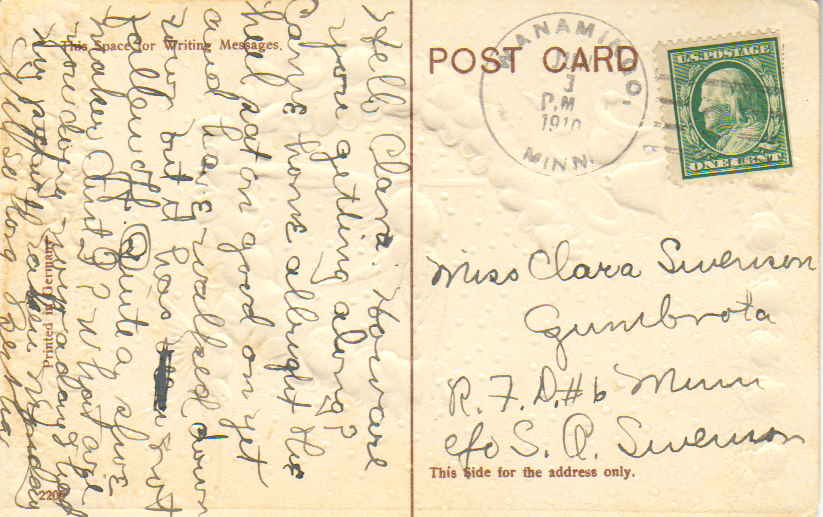 This Space for Writing Messages.
Hello Clara. How are
you getting along?
Came home allright the
heel sat on good on yet
and have walked down
town but it has not
fallen off. Quite a shoe
maker Aint I? What are
you doing
so long
Printed in Germany
POST CARD
WANAMINGO,
P.M
1910
MINN.
U.S. POSTAGE
ONE CENT
Miss Clara Swenson
Zumbrota
R. F. D. #6 Minn
c/o S. A. Swenson
This Side for the address only.